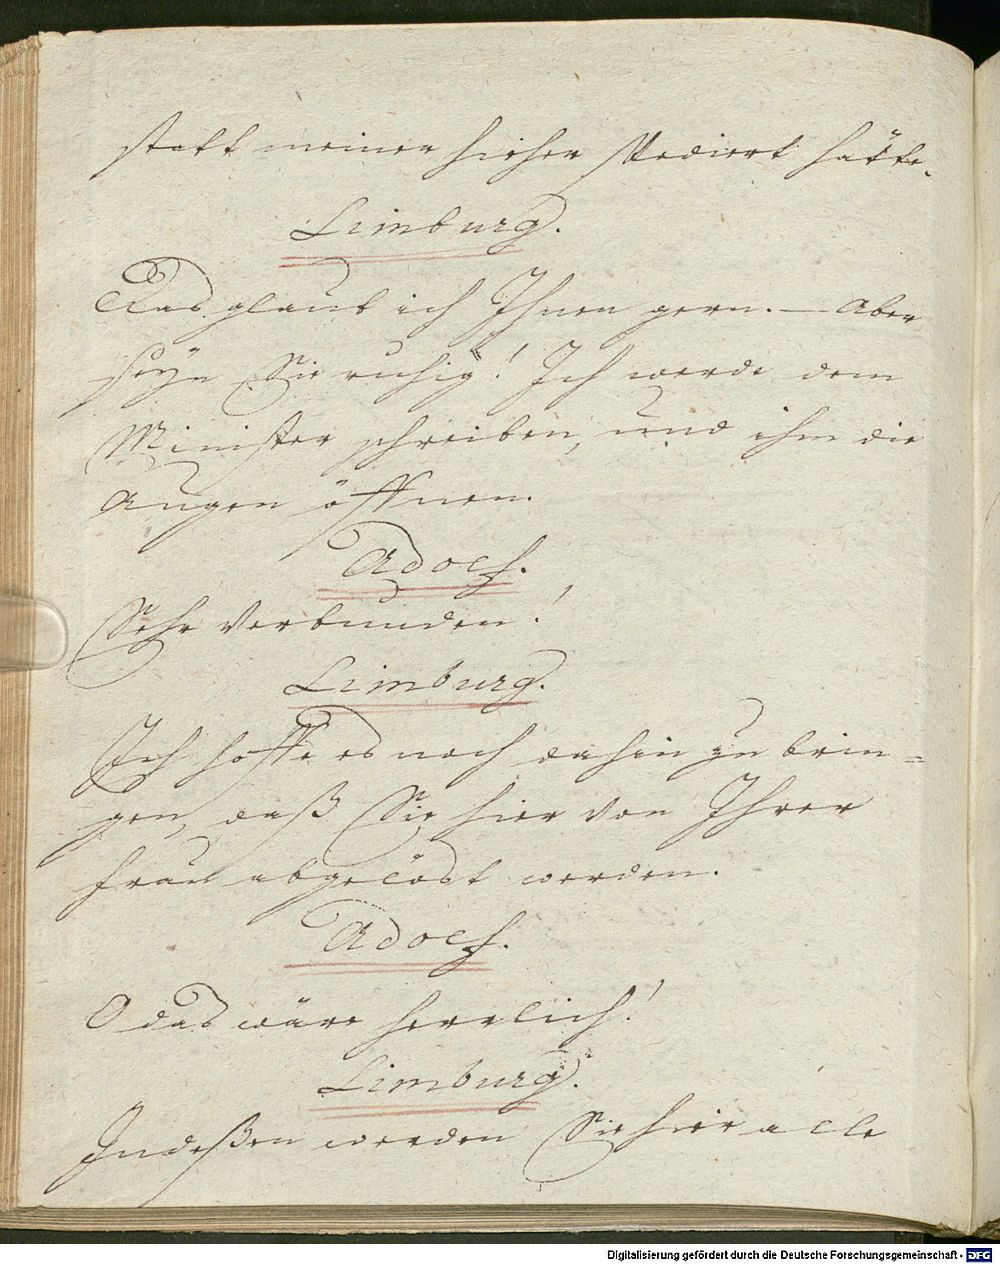 statt meiner hieher spediert hätte.
Limburg.
Das glaub ich Ihnen gern. — Aber
seyn Sie ruhig! Ich werde dem
Minister schreiben, und ihm die
Augen öffnen.
Adolf.
Sehr verbunden!
Limburg.
Ich hoffe es noch dahin zu brin=
gen, daß Sie hier von Ihrer
Frau abgelöst werden.
Adolf.
O das wäre herrlich!
Limburg.
Indeßen werden Sie hier alle
Digitalisierung gefördert durch die Deutsche Forschungsgemeinschaft - DFG